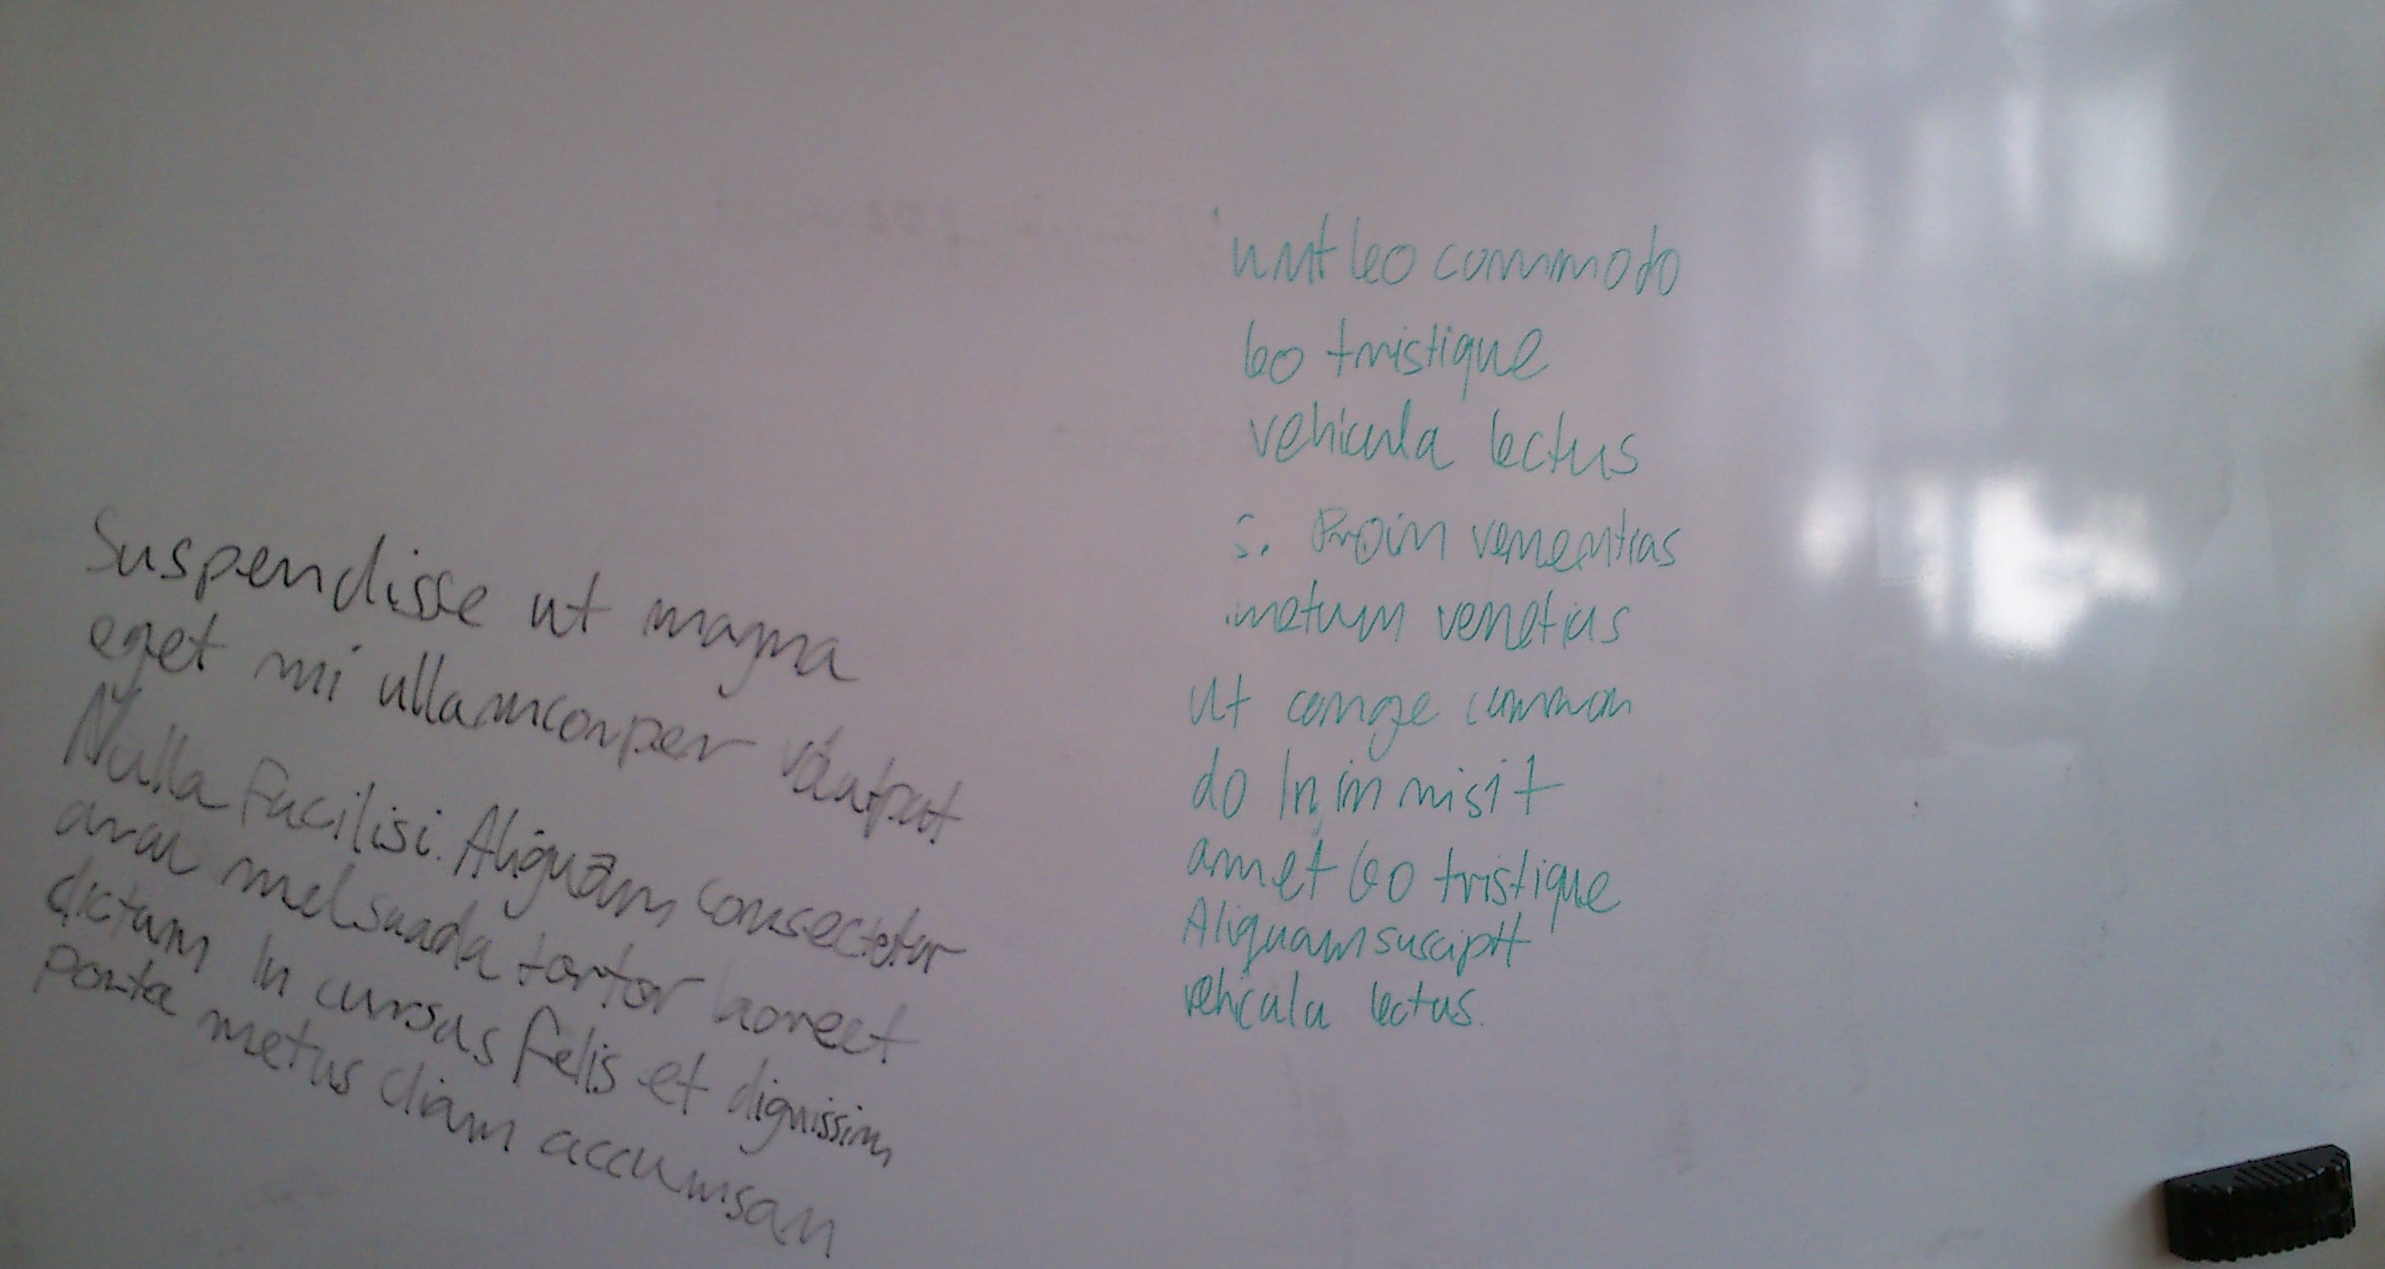 Suspendisse ut magna
eget mi ullamcorper
Nulla Facilisi. Aliquam consectetur
arcu melsuada tortor laoreet
dictum In cursus felis et dignissim
porta metus diam accumsan
leo commodo
leo tristique
vehicula lectus
s. Proin
metum
ut common
do In in nisi t
amet leo tristique
Aliquam suscipit
vehicula lectus.